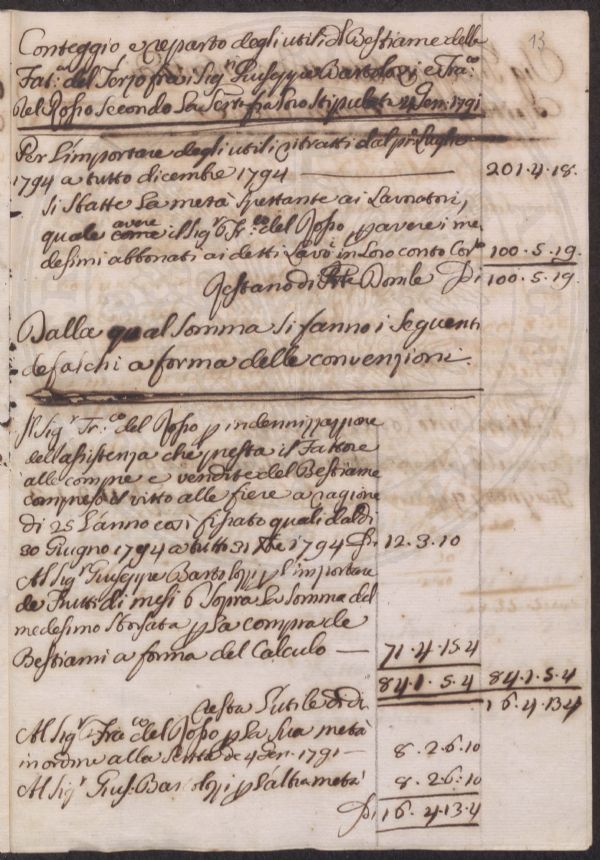 13
Conteggio e reparto degli utili di Bestiame della
Fat.ª del Terzo fra i Sig.ri Giuseppe Bartolozzi e Fra.co
Del Rosso secondo La Scrta fra loro stipulata 4 Gen: 1791
Per L'importare degli utili ritratti dal pmo Luglio
1794 a tutto dicembre 1794 — 201.4.18.
Si sbatte La metà spettante ai Lavoratori,
quale avere il Sig.r Fr.co del Rosso p avere i me
desimi abbonati ai detti Lavri in Loro conto Corte 100.5.19.
Restano di Pte Domle 100.5.19.
Dalla qual somma si fanno i seguenti
defalchi a forma delle convenzioni.
Il Sig.r Fr.co del Rosso p indennizzazione
dell'assistenza che presta il Fattore
alle compre e vendite del Bestiame
compreso il vitto alle fiere a ragione
di 25 L'anno così fissato quali dal dì
30 Giugno 1794 a tutto 31 Xbre 1794 12.3.10
Al Sig.r Giuseppe Bartolozzi p l'importare
de Frutti di mesi 6 sopra La somma del
medesimo sborsata p La compra de
Bestiami a forma del Calculo — 71.4.15.4
84.1.5.4 84.1.5.4
resta L'utile di 16.4.13.4
Al Sig.r Fra.co del Rosso p La sua metà
in ordine alla Scrta de 4 Gen: 1791 — 8.2.6.10
Al Sig.r Gius: Bartolozzi p l'altra metà 8.2.6.10
16.4.13.4